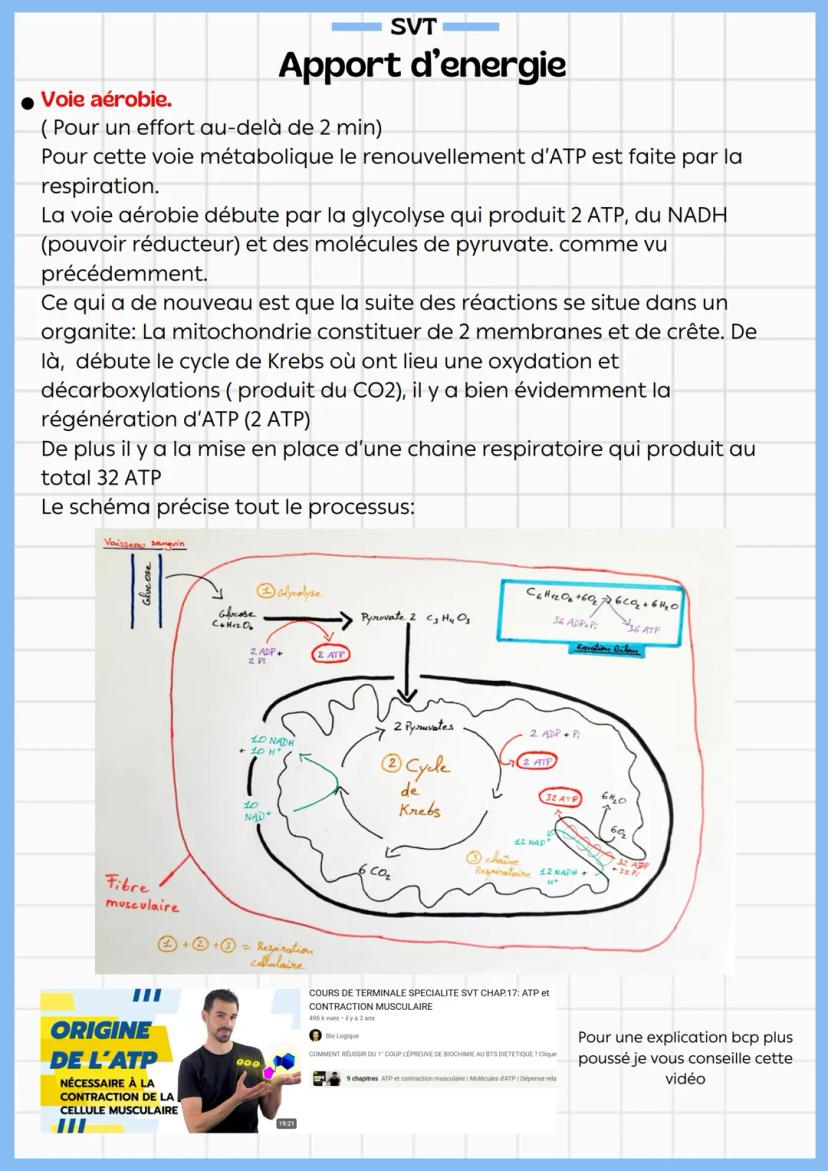 SVT
Apport d'energie
Voie aérobie.
( Pour un effort au-delà de 2 min)
Pour cette voie métabolique le renouvellement d'ATP est faite par la
respiration.
La voie aérobie débute par la glycolyse qui produit 2 ATP, du NADH
(pouvoir réducteur) et des molécules de pyruvate. comme vu
précédemment.
Ce qui a de nouveau est que la suite des réactions se situe dans un
organite: La mitochondrie constituer de 2 membranes et de crête. De
là, débute le cycle de Krebs où ont lieu une oxydation et
décarboxylations ( produit du CO2), il y a bien évidemment la
régénération d'ATP (2 ATP)
De plus il y a la mise en place d'une chaine respiratoire qui produit au
total 32 ATP
Le schéma précise tout le processus:
Vaisseau sanguin
Glucose
① Glycolyse
Glucose
C6H12O6
Pyruvate 2 C3H4O3
2 ADP +
2 Pi
2 ATP
C6H12O6 + 6O2 → 6CO2 + 6H2O
36 ADP+Pi
36 ATP
Equation bilan
2 Pyruvates
10 NADH
+ 10 H+
2 ADP + Pi
2 ATP
② Cycle
de
Krebs
10
NAD+
32 ATP
6H2O
6O2
12 NAD+
32 ADP
+ 32 Pi
③ chaîne
Respiratoire
12 NADH +
H+
6 CO2
Fibre
musculaire
① + ② + ③ = Respiration
cellulaire
ORIGINE
DE L'ATP
NÉCESSAIRE À LA
CONTRACTION DE LA
CELLULE MUSCULAIRE
19:21
COURS DE TERMINALE SPECIALITE SVT CHAP.17: ATP et
CONTRACTION MUSCULAIRE
496 k vues • il y a 3 ans
Bio Logique
COMMENT RÉUSSIR DU 1° COUP L'ÉPREUVE DE BIOCHIMIE AU BTS DIETETIQUE ? Clique
9 chapitres ATP et contraction musculaire | Molécules d'ATP | Dépense rela
Pour une explication bcp plus
poussé je vous conseille cette
vidéo